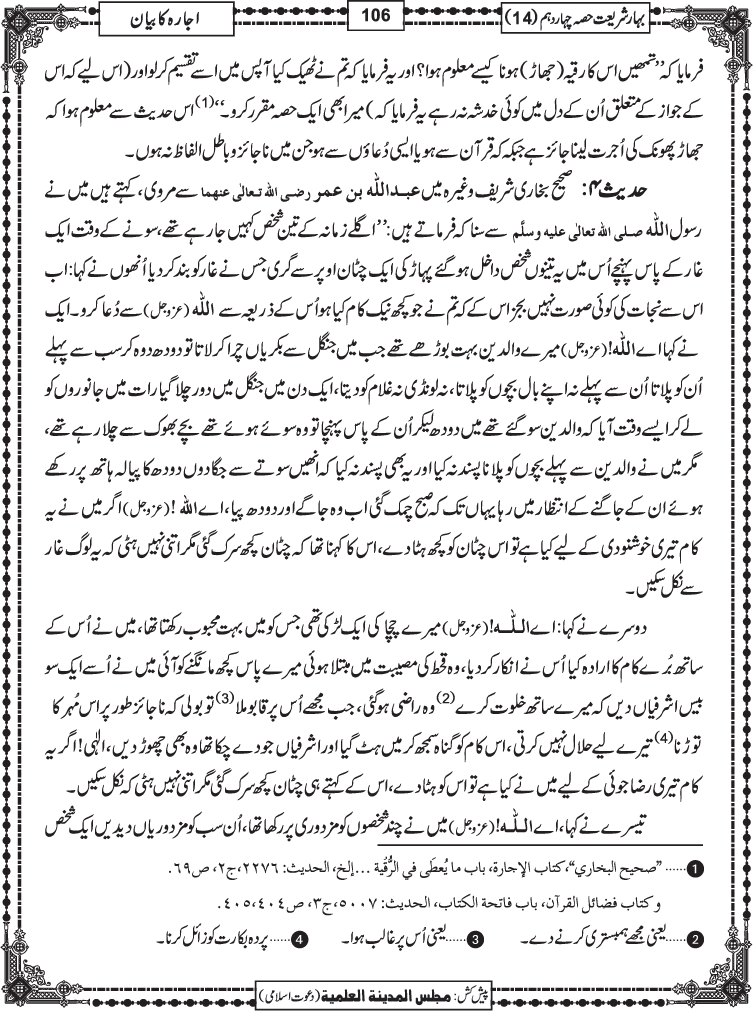 بہارِ شریعت حصہ چہاردہم (14)
106
اجارہ کا بیان
فرمایا کہ ’’تمھیں اس کا رقیہ (جھاڑ) ہونا کیسے معلوم ہوا؟ اور یہ فرمایا کہ تم نے ٹھیک کیا آپس میں اسے تقسیم کر لو اور (اس لیے کہ اس
کے جواز کے متعلق اُن کے دل میں کوئی خدشہ نہ رہے یہ فرمایا کہ) میرا بھی ایک حصہ مقرر کرو۔‘‘(1) اس حدیث سے معلوم ہوا کہ
جھاڑ پھونک کی اُجرت لینا جائز ہے جبکہ کہ قرآن سے ہو یا ایسی دُعاؤں سے ہو جن میں ناجائز و باطل الفاظ نہ ہوں۔
حدیث ۴: صحیح بخاری شریف وغیرہ میں عبداللہ بن عمر رضی اللہ تعالٰی عنھما سے مروی، کہتے ہیں میں نے
رسول اللہ صلی اللہ تعالٰی علیہ وسلَّم سے سنا کہ فرماتے ہیں: ’’اگلے زمانہ کے تین شخص کہیں جا رہے تھے، سونے کے وقت ایک
غار کے پاس پہنچے اُس میں یہ تینوں شخص داخل ہو گئے پہاڑ کی ایک چٹان اوپر سے گری جس نے غار کو بند کر دیا اُنھوں نے کہا: اب
اس سے نجات کی کوئی صورت نہیں بجز اس کے کہ تم نے جو کچھ نیک کام کیا ہو اُس کے ذریعہ سے اللہ (عزوجل) سے دُعا کرو۔ ایک
نے کہا اے اللہ! (عزوجل) میرے والدین بہت بوڑھے تھے جب میں جنگل سے بکریاں چرا کر لاتا تو دودھ دوہ کر سب سے پہلے
اُن کو پلاتا اُن سے پہلے نہ اپنے بال بچوں کو پلاتا، نہ لونڈی نہ غلام کو دیتا، ایک دن میں جنگل میں دور چلا گیا رات میں جانوروں کو
لے کر ایسے وقت آیا کہ والدین سو گئے تھے میں دودھ لیکر اُن کے پاس پہنچا تو وہ سوئے ہوئے تھے بچے بھوک سے چلا رہے تھے،
مگر میں نے والدین سے پہلے بچوں کو پلانا پسند نہ کیا اور یہ بھی پسند نہ کیا کہ انھیں سوتے سے جگا دوں دودھ کا پیالہ ہاتھ پر رکھے
ہوئے ان کے جاگنے کے انتظار میں رہا یہاں تک کہ صبح چمک گئی اب وہ جاگے اور دودھ پیا، اے اللہ! (عزوجل) اگر میں نے یہ
کام تیری خوشنودی کے لیے کیا ہے تو اس چٹان کو کچھ ہٹا دے، اس کا کہنا تھا کہ چٹان کچھ سرک گئی مگر اتنی نہیں ہٹی کہ یہ لوگ غار
سے نکل سکیں۔
دوسرے نے کہا: اے اللہ! (عزوجل) میرے چچا کی ایک لڑکی تھی جس کو میں بہت محبوب رکھتا تھا، میں نے اُس کے
ساتھ بُرے کام کا ارادہ کیا اُس نے انکار کر دیا، وہ قحط کی مصیبت میں مبتلا ہوئی میرے پاس کچھ مانگنے کو آئی میں نے اُسے ایک سو
بیس اشرفیاں دیں کہ میرے ساتھ خلوت کرے(2) وہ راضی ہو گئی، جب مجھے اُس پر قابو ملا(3) تو بولی کہ ناجائز طور پر اس مُہر کا
توڑنا(4) تیرے لیے حلال نہیں کرتی، اس کام کو گناہ سمجھ کر میں ہٹ گیا اور اشرفیاں جو دے چکا تھا وہ بھی چھوڑ دیں، الٰہی! اگر یہ
کام تیری رضا جوئی کے لیے میں نے کیا ہے تو اس کو ہٹا دے، اس کے کہتے ہی چٹان کچھ سرک گئی مگر اتنی نہیں ہٹی کہ نکل سکیں۔
تیسرے نے کہا، اے اللہ! (عزوجل) میں نے چند شخصوں کو مزدوری پر رکھا تھا، اُن سب کو مزدوریاں دیدیں ایک شخص
1 ......’’صحیح البخاري‘‘، کتاب الإجارۃ، باب ما یُعطَی في الرُّقْیۃ ... إلخ، الحدیث: ۲۲۷۶، ج۲، ص۶۹.
و کتاب فضائل القرآن، باب فاتحۃ الکتاب، الحدیث: ۵۰۰۷، ج۳، ص۴۰۴،۴۰۵.
2 ......یعنی مجھے ہمبستری کرنے دے۔ 3 ......یعنی اُس پر غالب ہوا۔ 4 ......پردہ بکارت کو زائل کرنا۔
پیش کش: مجلس المدینۃ العلمیۃ (دعوت اسلامی)